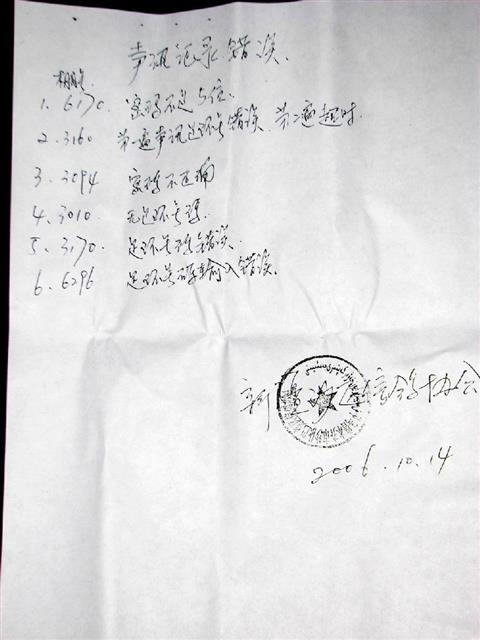 声讯记录错误.
棚号
1. 6170. 密码不足5位.
2. 3160 第一遍声讯足环号错误. 第二遍超时.
3. 3094 密码不正确
4. 3010 无足环号码.
5. 3170. 足环号码错误.
6. 6296 足环号码输入错误.
新 信鸽协会
2006.10.14